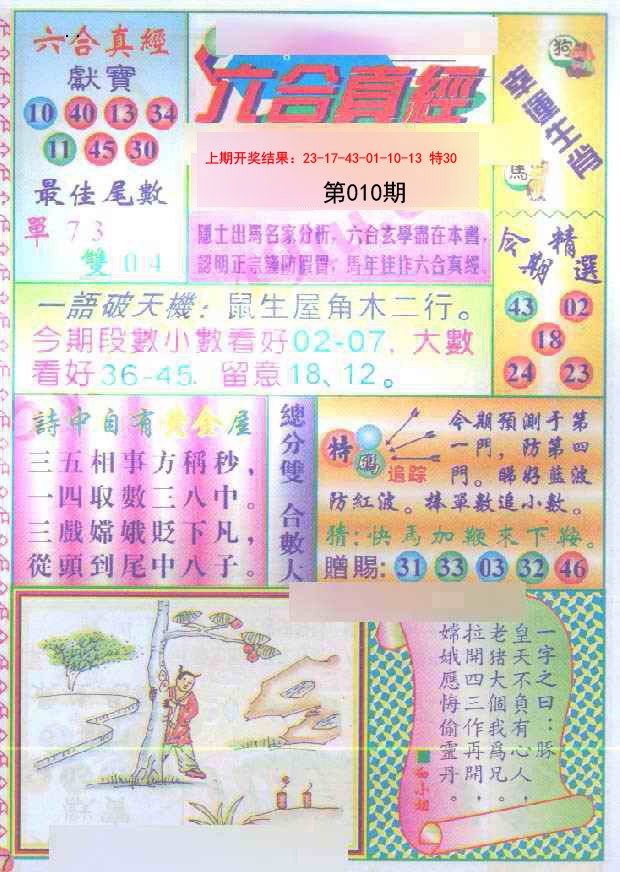 六合真經
獻寶
10 40 13 34
11 45 30
最佳尾數
單 7 3
雙 0 4
六合真經
上期开奖结果: 23-17-43-01-10-13 特30
第010期
隱士出馬名家分析，六合玄學盡在本書，
認明正宗謹防假冒，馬年佳作六合真經。
狗
幸運生肖
馬
今期精選
43 02
18
24 23
一語破天機：鼠生屋角木二行。
今期段數小數看好02-07，大數
看好36-45 留意18、12。
詩中自有黃金屋
三五相事方稱秒，
一四取數三八中。
三戲嫦娥貶下凡，
從頭到尾中八子。
總分雙 合數大
特 馬
追踪
今期預測于第
一門，防第四
門。睇好藍波
防紅波。棒單數追小數。
猜：快馬加鞭來下鞍。
贈賜：31 33 03 32 46
一字之曰：豚
皇天不負有心人，
老猪大個我爲兄。
拉開四三作再開，
嫦娥應悔偷靈丹。